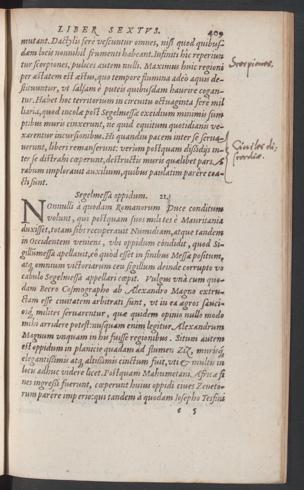 LIBER SEXTVS. 409
mutant. Dactylis ferè vescuntur omnes, nisi quod quibus-
dam locis nonnihil frumenti habeant. Infiniti hic reperiun-
tur scorpiones, pulices autem nulli. Maximus huic regioni
per æstatem est æstus, quo tempore flumina adeò aquis de-
stituuntur, vt salsam è puteis quibusdam haurire cogan-
tur. Habet hoc territorium in circuitu octuaginta ferè mil-
liaria, quod incolæ post Segelmessæ excidium minimis sum-
ptibus muris cinxerunt, ne quid equitum quotidianis ve-
xarentur incursionibus. Hi quamdiu pacem inter se serua-
uerunt, liberi remanserunt: verùm postquam dissidijs in-
ter se distrahi cœperunt, destructis muris quælibet pars A-
rabum implorauit auxilium, quibus paulatim parêre coa-
cti sunt.
Scorpiones.
Ciuiles di-
scordiæ.
Segelmessa oppidum. 21.
Nonnulli à quodam Romanorum Duce conditum
volunt, qui postquam suos milites è Mauritania
auxisset, totam sibi recuperauit Numidiam, atque tandem
in Occidentem veniens, vbi oppidum condidit, quod Si-
gillumessa apellauit, eò quòd esset in finibus Messæ positum,
atq; omnium victoriarum ceu sigillum deinde corrupto vo
cabulo Segelmessa appellari cœpit. Vulgus vnà cum quo-
dam Becro Cosmographo ab Alexandro Magno extru-
ctam esse ciuitatem arbitrati sunt, vt in ea ægros sauci-
osq; milites seruarentur, quæ quidem opinio nullo modo
mihi arridere potest: nusquam enim legitur Alexandrum
Magnum vnquam in his fuisse regionibus. Situm autem
est oppidum in planicie quadam ad flumen Ziz, murisq;
elegantissimis atq; altissimis cinctum fuit, vti & multis in
locis adhuc videre licet. Postquam Mahumetani Africæ fi
nes ingressi fuerunt, cœperunt huius oppidi ciues Zeneto-
rum parêre imperio: qui tandem à quodam Iosepho Tesfini